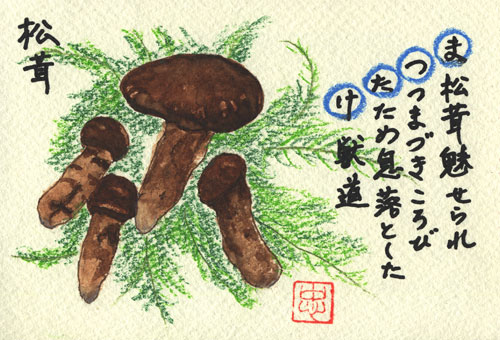 ま松茸魅せられ
つつまづきころび
たため息落とした
け獣道
松茸